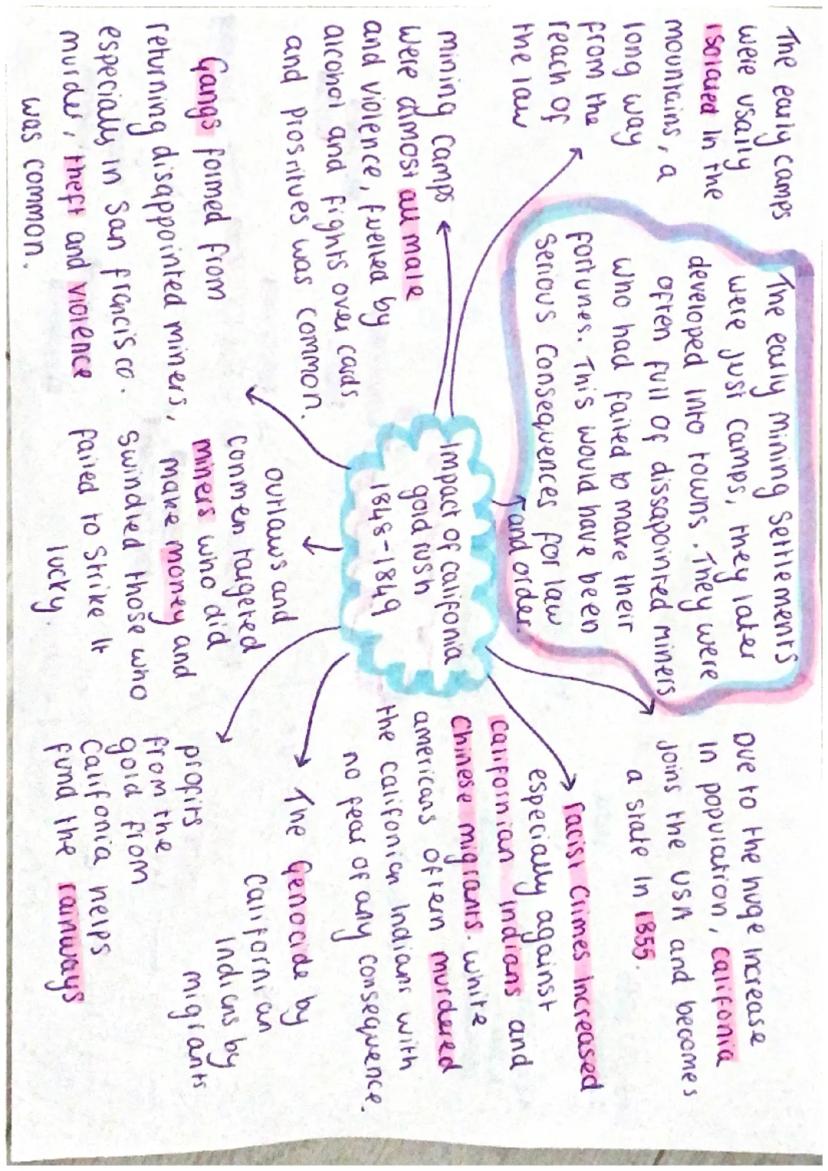 The early camps
were usally
isolated in the
mountains, a
long way
from the
reach of
the law
The early mining settlements
were just camps, they later
developed into towns. They were
often full of dissapointed miners
who had failed to make their
fortunes. This would have been
serious consequences for law
and order.
Due to the huge increase
in population, califonia
joins the USA and becomes
a state in 1855.
mining camps
were almost all male
and violence, fuelled by
alcohol and fights over cards
and prositives was common.
Impact of califonia
gold rush
1848-1849
racist crimes increased
especially against
californian indians and
chinese migrants. white
americans often murdered
the califonian indians with
no fear of any consequence.
Gangs formed from
returning disappointed miners,
especially in San francisco.
murder, theft and violence
was common.
outlaws and
conmen targeted
miners who did
make money and
swindled those who
failed to strike it
lucky.
The genocide by
californian
indians by
migrants
profits
from the
gold from
Califonia helps
fund the railways